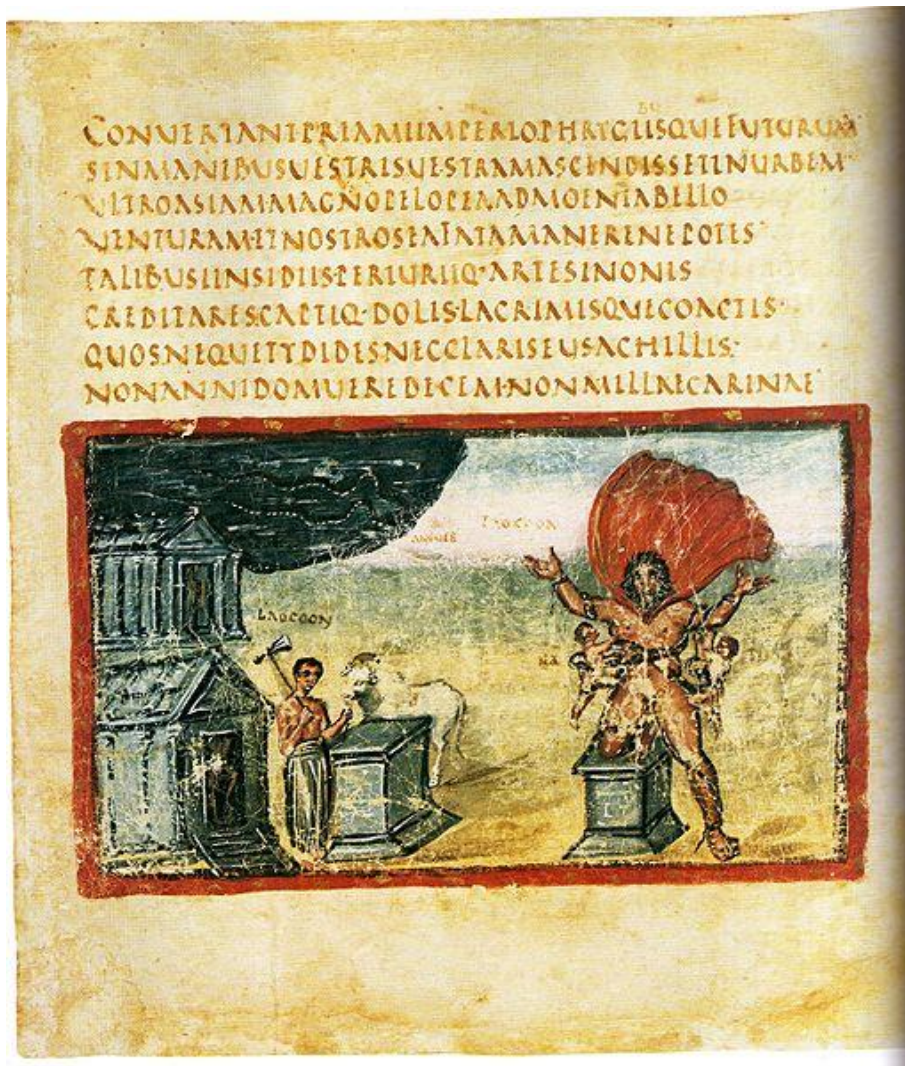 BU
CONUERTANTPRIAMIIMPERIOPHRYGIISQUEFUTURUM
SINMANIBUSUESTRISUESTRAMASCENDISSETINURBEM·
ULTROASIAMMAGNOPELOPEAADMOENIABELLO
UENTURAMETNOSTROSEAFATAMANERENEPOTES·
TALIBUSINSIDIISPERIURIIQ·ARTESINONIS
CREDITARESCAPTIQ·DOLIS·LACRIMISQUECOACTIS·
QUOSNEQUETYDIDESNECCLARISEUSACHILLES·
NONANNIDOMUEREDECEM·NONMILLAECARINAE·
LAOCOON
ANGUES
LAOCOON